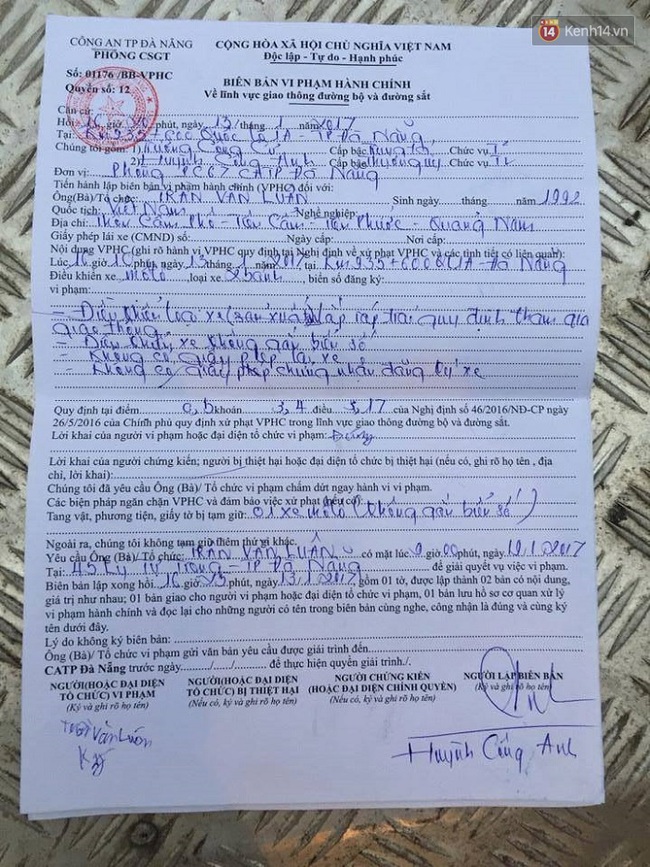 14 Kenh14.vn
CÔNG AN TP ĐÀ NẴNG
PHÒNG CSGT
Số: 01176 /BB-VPHC
Quyển số: 12
CỘNG HÒA XÃ HỘI CHỦ NGHĨA VIỆT NAM
Độc lập - Tự do - Hạnh phúc
BIÊN BẢN VI PHẠM HÀNH CHÍNH
Về lĩnh vực giao thông đường bộ và đường sắt
Căn cứ
Hồi 16 giờ phút, ngày 13/tháng 1 năm 2017
Tại: Km 935+600 Quốc lộ 1A - TP Đà Nẵng
Chúng tôi gồm: Cấp bậc Chức vụ
2) Huỳnh Công Anh Cấp bậc Chức vụ
Đơn vị: Phòng PC67 CATP Đà Nẵng
Tiến hành lập biên bản vi phạm hành chính (VPHC) đối với:
Ông(Bà)/Tổ chức: TRẦN VĂN LUÂN Sinh ngày tháng năm 1992
Quốc tịch: Việt Nam Nghề nghiệp:
Địa chỉ: Thôn Cẩm Phô - Tiên Cẩm - Tiên Phước - Quảng Nam
Giấy phép lái xe (CMND) số: Ngày cấp: Nơi cấp:
Nội dung VPHC (ghi rõ hành vi VPHC quy định tại Nghị định về xử phạt VPHC và các tình tiết có liên quan):
Lúc, 16 giờ 10 phút, ngày 13 tháng 1 năm 2017 tại Km 935+600 QL1A - Đà Nẵng
Điều khiển xe mô tô loại xe 3 bánh, biển số đăng ký:
vi phạm:
- Điều khiển loại xe sản xuất lắp ráp trái quy định tham gia
giao thông
- Điều khiển xe không gắn biển số
- Không có giấy phép lái xe
- Không có giấy phép chứng nhận đăng ký xe
Quy định tại điểm a, b khoản 3, 4 điều 17 của Nghị định số 46/2016/NĐ-CP ngày
26/5/2016 của Chính phủ quy định xử phạt VPHC trong lĩnh vực giao thông đường bộ và đường sắt.
Lời khai của người vi phạm hoặc đại diện tổ chức vi phạm: Đúng
Lời khai của người chứng kiến; người bị thiệt hại hoặc đại diện tổ chức bị thiệt hại (nếu có, ghi rõ họ tên , địa
chỉ, lời khai):
Chúng tôi đã yêu cầu Ông (Bà)/ Tổ chức vi phạm chấm dứt ngay hành vi vi phạm.
Các biện pháp ngăn chặn VPHC và đảm bảo việc xử phạt (nếu có):
Tang vật, phương tiện, giấy tờ bị tạm giữ: 01 xe mô tô (không gắn biển số)
Ngoài ra, chúng tôi không tạm giữ thêm thứ gì khác.
Yêu cầu Ông (Bà)/ Tổ chức: TRẦN VĂN LUÂN có mặt lúc giờ 00 phút, ngày 19.1.2017
Tại: 45 Lý Tự Trọng - TP Đà Nẵng để giải quyết vụ việc vi phạm.
Biên bản lập xong hồi 16 giờ 25 phút, ngày 13.1.2017 gồm 01 tờ, được lập thành 02 bản có nội dung,
giá trị như nhau; 01 bản giao cho người vi phạm hoặc đại diện tổ chức vi phạm, 01 bản lưu hồ sơ cơ quan xử lý
vi phạm hành chính và đọc lại cho những người có tên trong biên bản cùng nghe, công nhận là đúng và cùng ký
tên dưới đây.
Lý do không ký biên bản:
Ông (Bà)/ Tổ chức vi phạm gửi văn bản yêu cầu được giải trình đến
CATP Đà Nẵng trước ngày / / để thực hiện quyền giải trình./.
NGƯỜI(HOẶC ĐẠI DIỆN
TỔ CHỨC) VI PHẠM
(Ký và ghi rõ họ tên)
NGƯỜI(HOẶC ĐẠI DIỆN
TỔ CHỨC) BỊ THIỆT HẠI
(Nếu có, ký và ghi rõ họ tên)
NGƯỜI CHỨNG KIẾN
(HOẶC ĐẠI DIỆN CHÍNH QUYỀN)
(Nếu có, ký và ghi rõ họ tên)
NGƯỜI LẬP BIÊN BẢN
(Ký và ghi rõ họ tên)
Trần Văn Luân
Ký
Huỳnh Công Anh